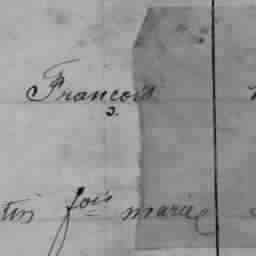 Francois
2.
tin fois marié